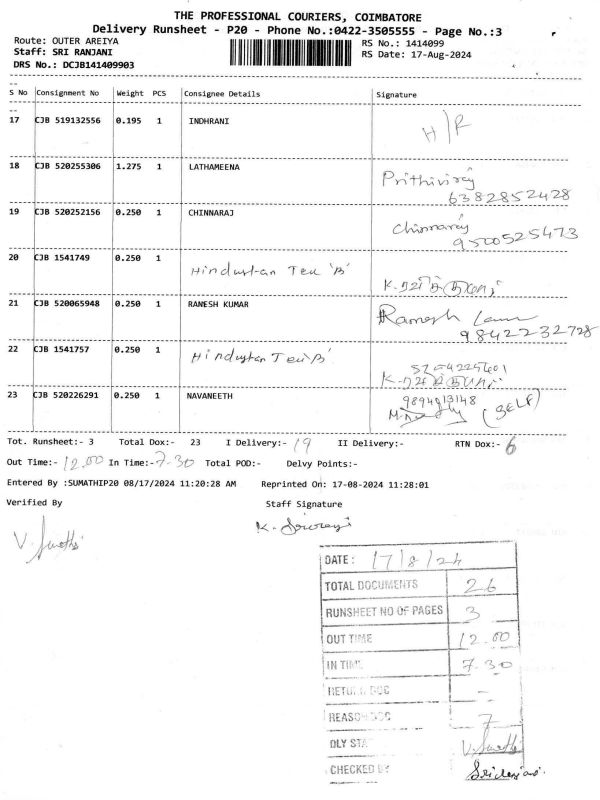 THE PROFESSIONAL COURIERS, COIMBATORE
Delivery Runsheet - P20 - Phone No.:0422-3505555 - Page No.:3
Route: OUTER AREIYA
RS No.: 1414099
Staff: SRI RANJANI
RS Date: 17-Aug-2024
DRS No.: DCJB141409903
S No Consignment No Weight PCS Consignee Details Signature
17 CJB 519132556 0.195 1 INDHRANI H/R
18 CJB 520255306 1.275 1 LATHAMEENA Prithiviraj
6382852428
19 CJB 520252156 0.250 1 CHINNARAJ Chinnaraj
9500525473
20 CJB 1541749 0.250 1 Hindustan Tex 'B' K.
21 CJB 520065948 0.250 1 RANESH KUMAR Ramesh
9842232728
22 CJB 1541757 0.250 1 Hindustan Tex 'B' K.
23 CJB 520226291 0.250 1 NAVANEETH 9894913148
(SELF)
Tot. Runsheet:- 3 Total Dox:- 23 I Delivery:- 19 II Delivery:- RTN Dox:- 6
Out Time:- 12.00 In Time:- 7-30 Total POD:- Delvy Points:-
Entered By :SUMATHIP20 08/17/2024 11:20:28 AM Reprinted On: 17-08-2024 11:28:01
Verified By Staff Signature
V. Sumathi
DATE: 17/8/24
TOTAL DOCUMENTS 26
RUNSHEET NO OF PAGES 3
OUT TIME 12.00
IN TIME 7-30
RETURN DOC -
REASON DOC 7
DLY STA V. Sumathi
CHECKED BY Sriranjani